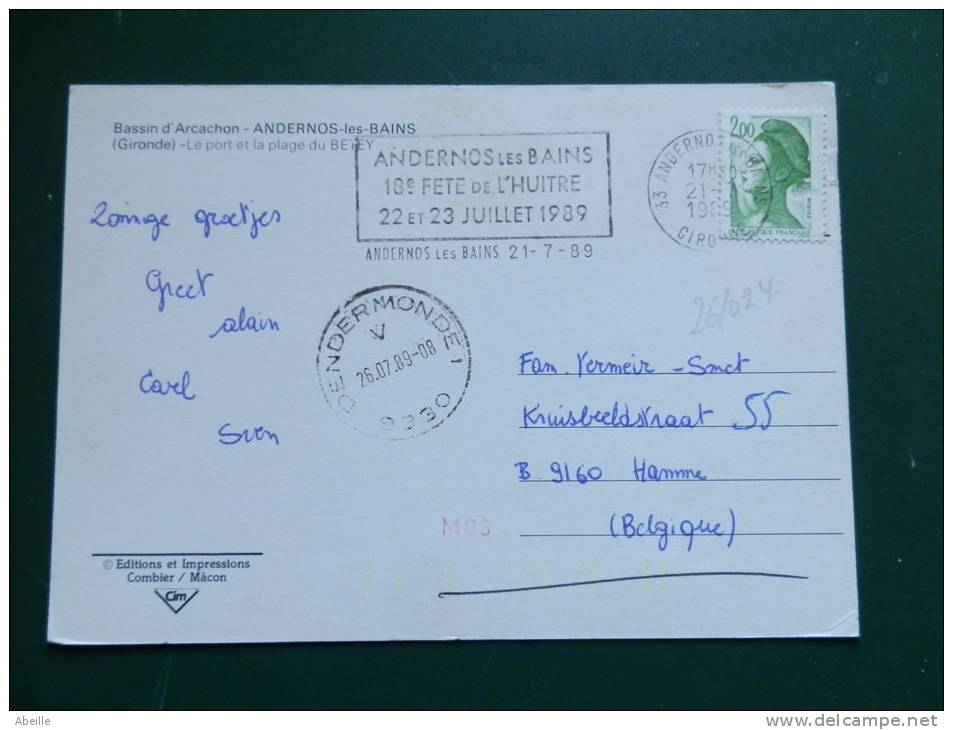 Bassin d'Arcachon - ANDERNOS-les-BAINS
(Gironde) - Le port et la plage du BETEY
ANDERNOS LES BAINS
18e FETE DE L'HUITRE
22 ET 23 JUILLET 1989
ANDERNOS LES BAINS 21-7-89
33 ANDERNOS LES BAINS
17H
21-
1989
GIRONDE
2,00
REPUBLIQUE FRANÇAISE
Zonnige groetjes
Greet
alain
Carl
Sven
DENDERMONDE 1
V
26.07.89-08
9330
26/024.
Fam. Vermeir - Smet
Kruisbeeldstraat 55
B. 9160 Hamme
(Belgique)
M03
© Editions et Impressions
Combier / Mâcon
Cim
Abeille
www.delcampe.net